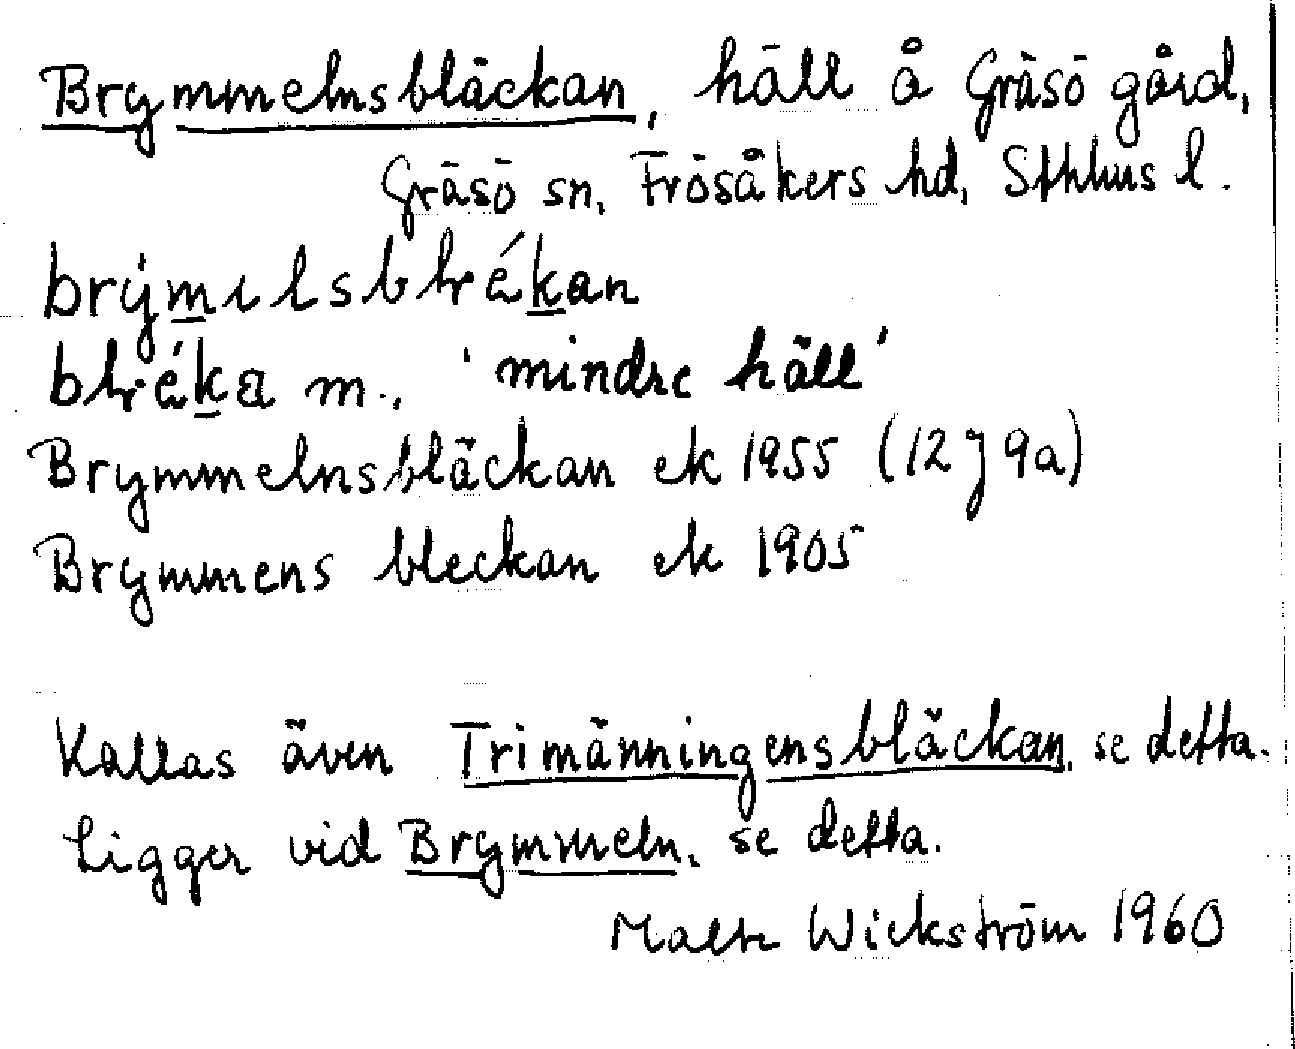 Brymmelnsbläckan, häll å Gräsö gård,
Gräsö sn, Frösåkers hd, Sthlms l.
brýmılsblékan
bléka m., 'mindre häll'
Brymmelnsbläckan ek 1955 (12 J 9a)
Brymmens bleckan ek 1905
Kallas även Trimänningensbläckan, se detta.
Ligger vid Brymmeln, se detta.
Malte Wickström 1960